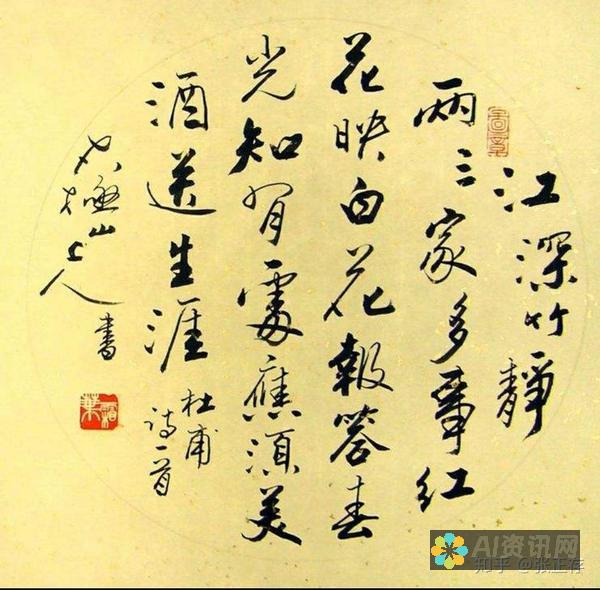 江深竹静
两三家多事红
花映白花报答春
光知有处应须美
酒送生涯
杜甫
诗一首
太极山上人
书
AI资讯网
知乎 @张正存